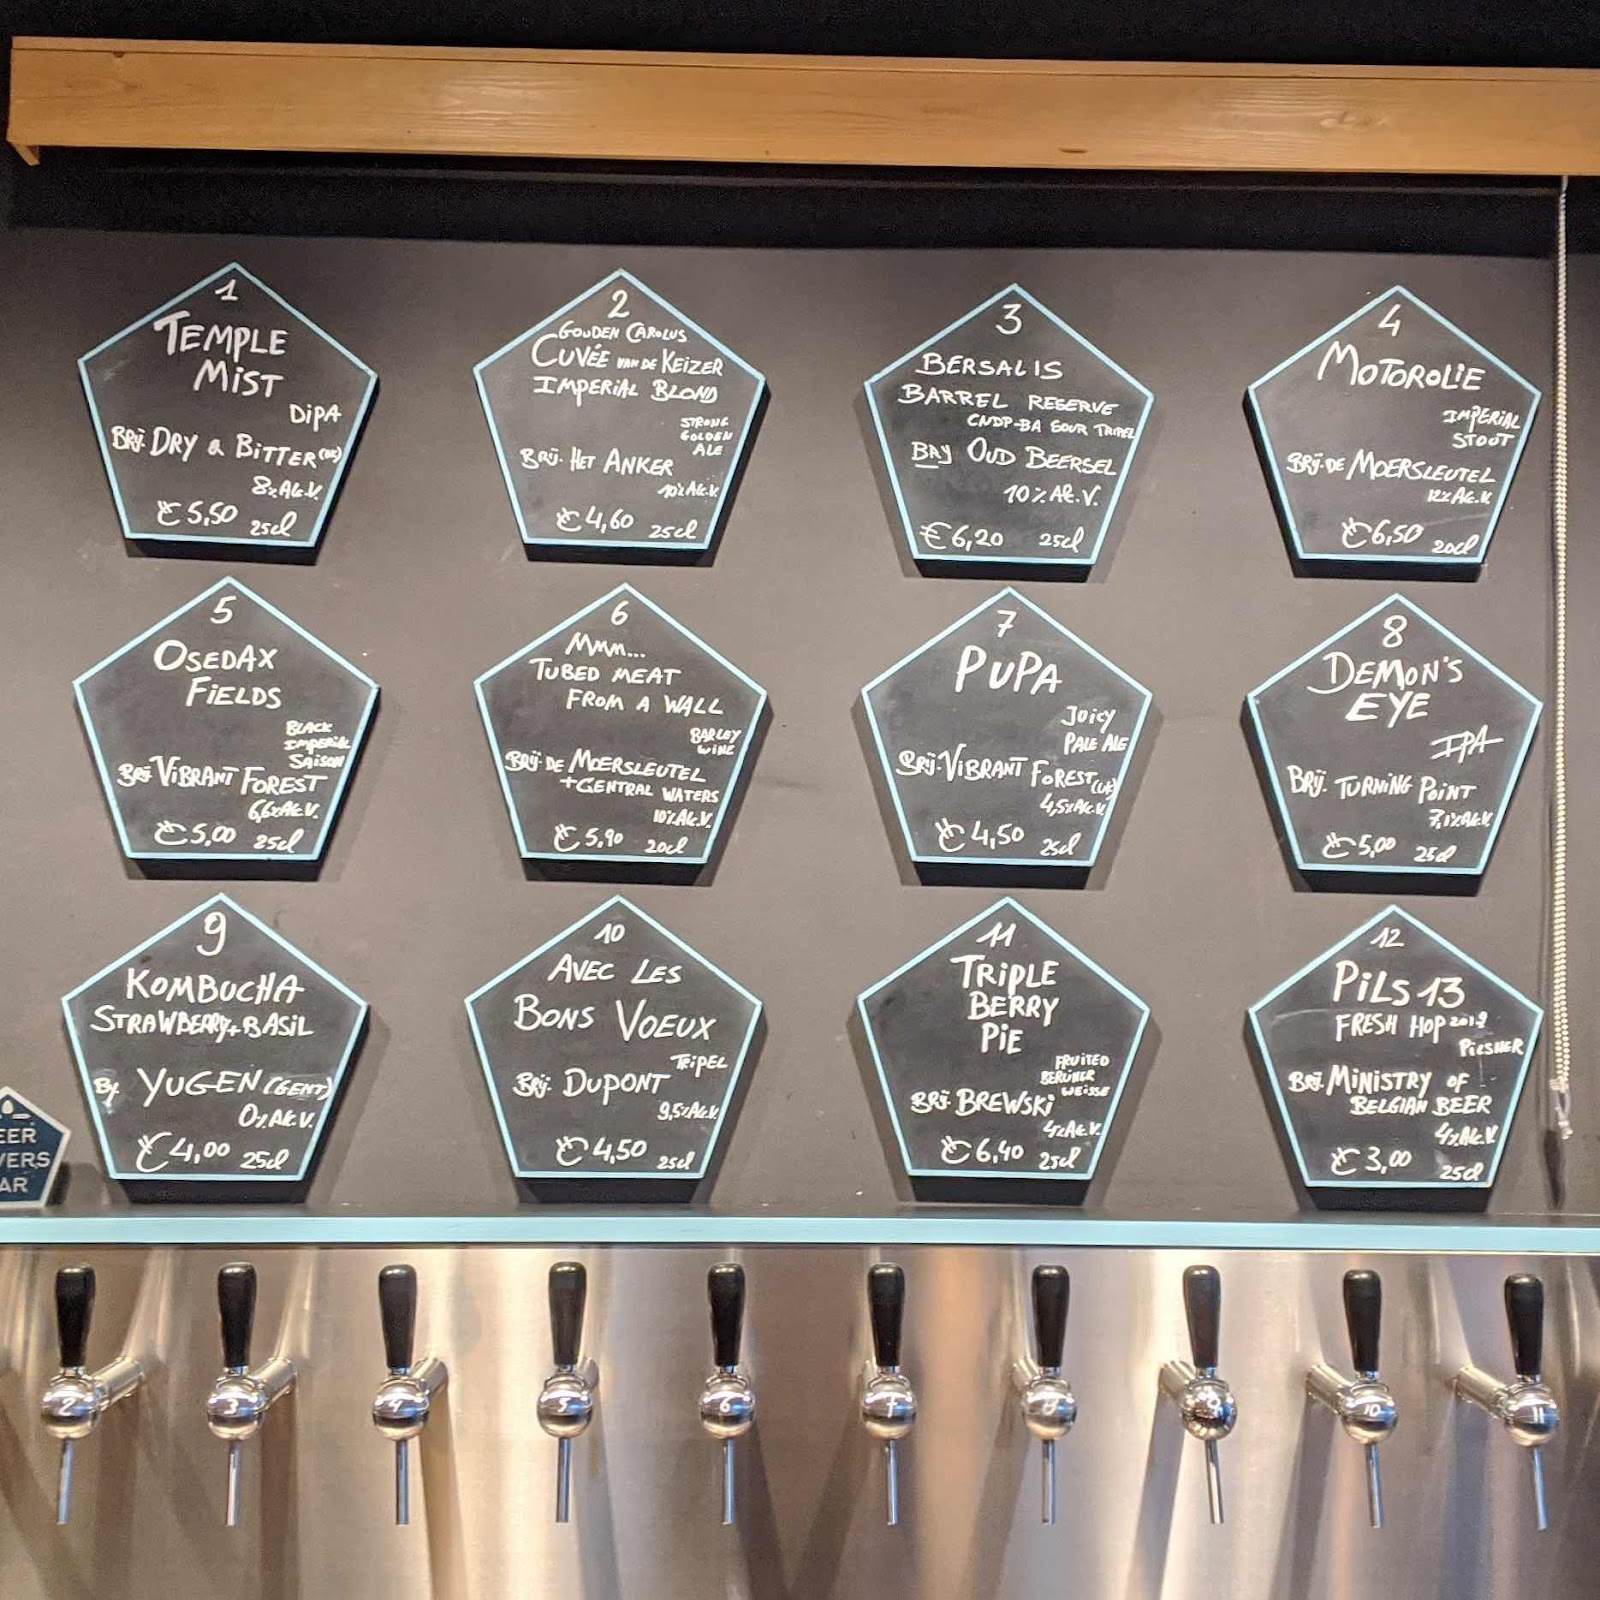 1
TEMPLE
MIST
DIPA
BRIJ. DRY & BITTER (DK)
8% Alc.V.
€5,50 25cl
2
GOUDEN CAROLUS
CUVÉE VAN DE KEIZER
IMPERIAL BLOND
STRONG
GOLDEN
ALE
BRIJ. HET ANKER
10% Alc.V.
€4,60 25cl
3
BERSALIS
BARREL RESERVE
CNDP-BA SOUR TRIPEL
BRIJ OUD BEERSEL
10% Alc.V.
€6,20 25cl
4
MOTOROLIE
IMPERIAL
STOUT
BRIJ. DE MOERSLEUTEL
12% Alc.V.
€6,50 20cl
5
OSEDAX
FIELDS
BLACK
IMPERIAL
SAISON
BRIJ. VIBRANT FOREST
6,6% Alc.V.
€5,00 25cl
6
MMM...
TUBED MEAT
FROM A WALL
BARLEY
WINE
BRIJ. DE MOERSLEUTEL
+CENTRAL WATERS
10% Alc.V.
€5,90 20cl
7
PUPA
JUICY
PALE ALE
BRIJ. VIBRANT FOREST (UK)
4,5% Alc.V.
€4,50 25cl
8
DEMON'S
EYE
IPA
BRIJ. TURNING POINT
7,1% Alc.V.
€5,00 25cl
9
KOMBUCHA
STRAWBERRY+BASIL
By YUGEN (GENT)
0% Alc.V.
€4,00 25cl
10
AVEC LES
BONS VOEUX
TRIPEL
BRIJ. DUPONT
9,5% Alc.V.
€4,50 25cl
11
TRIPLE
BERRY
PIE
FRUITED
BERLINER
WEISSE
BRIJ. BREWSKI
4% Alc.V.
€6,40 25cl
12
PILS 13
FRESH HOP 2019
PILSNER
BRIJ. MINISTRY OF
BELGIAN BEER
4% Alc.V.
€3,00 25cl
EER
VERS
AR
2 3 4 5 6 7 8 9 10 11